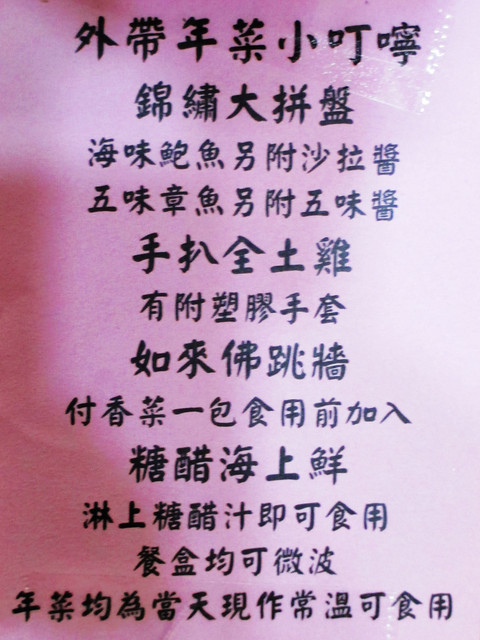 外帶年菜小叮嚀
錦繡大拼盤
海味鮑魚另附沙拉醬
五味章魚另附五味醬
手扒全土雞
有附塑膠手套
如來佛跳牆
付香菜一包食用前加入
糖醋海上鮮
淋上糖醋汁即可食用
餐盒均可微波
年菜均為當天現作常溫可食用